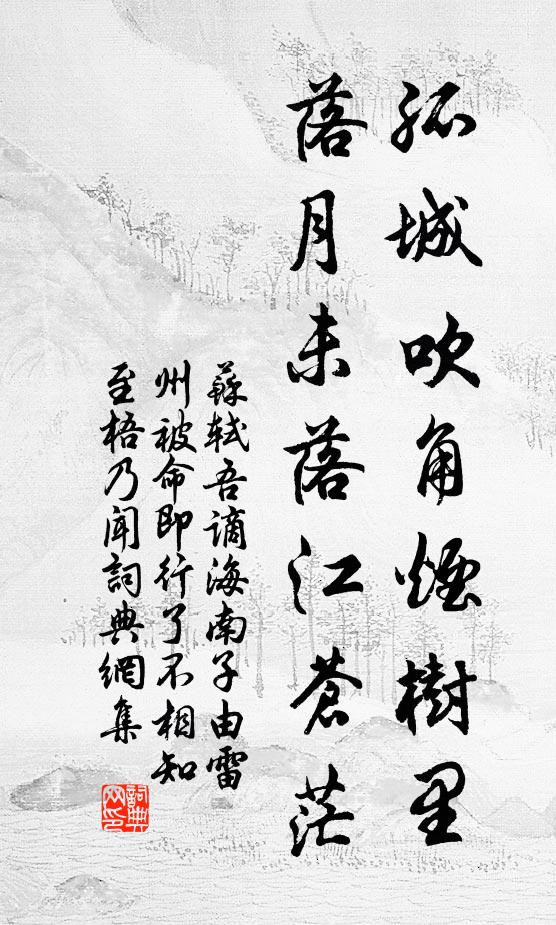 孤城吹角煙樹里
落月未落江蒼茫
蘇軾吾謫海南子由雷
州被命即行了不相知
至梧乃闻詞典網集
詞典网印